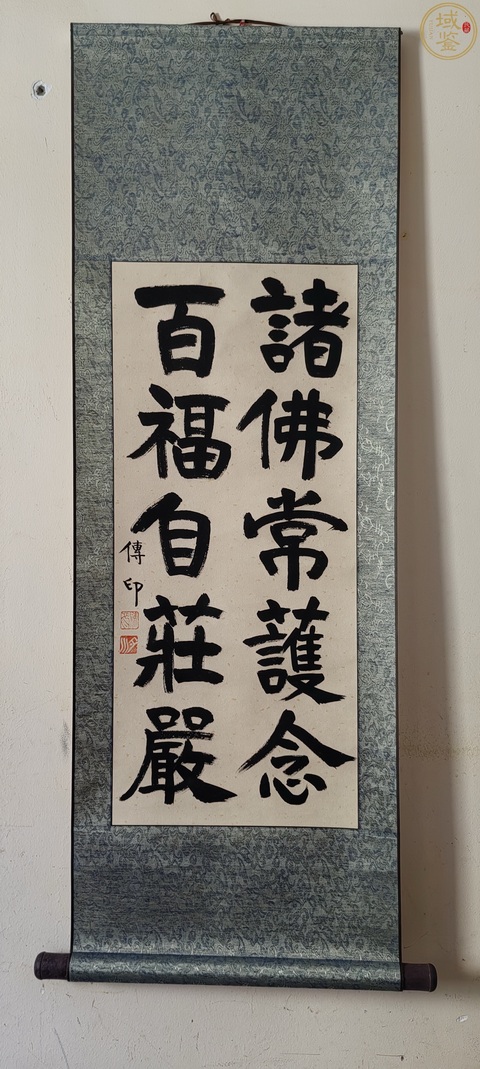 諸佛常護念
百福自莊嚴
傳印
域鉴